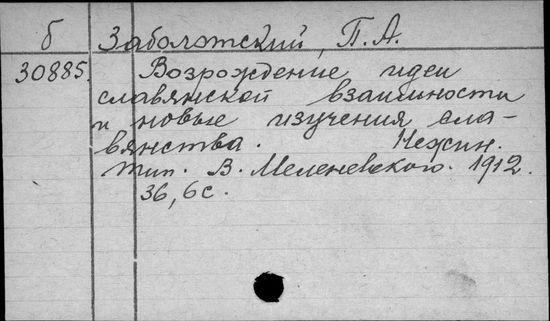 б Заболотский, П.А.
30885. Возрождение идеи
славянской взаимности
и новые изучения сла-
вянства. Нежин.
тип. В. Меленевского. 1912.
36, 6 с.